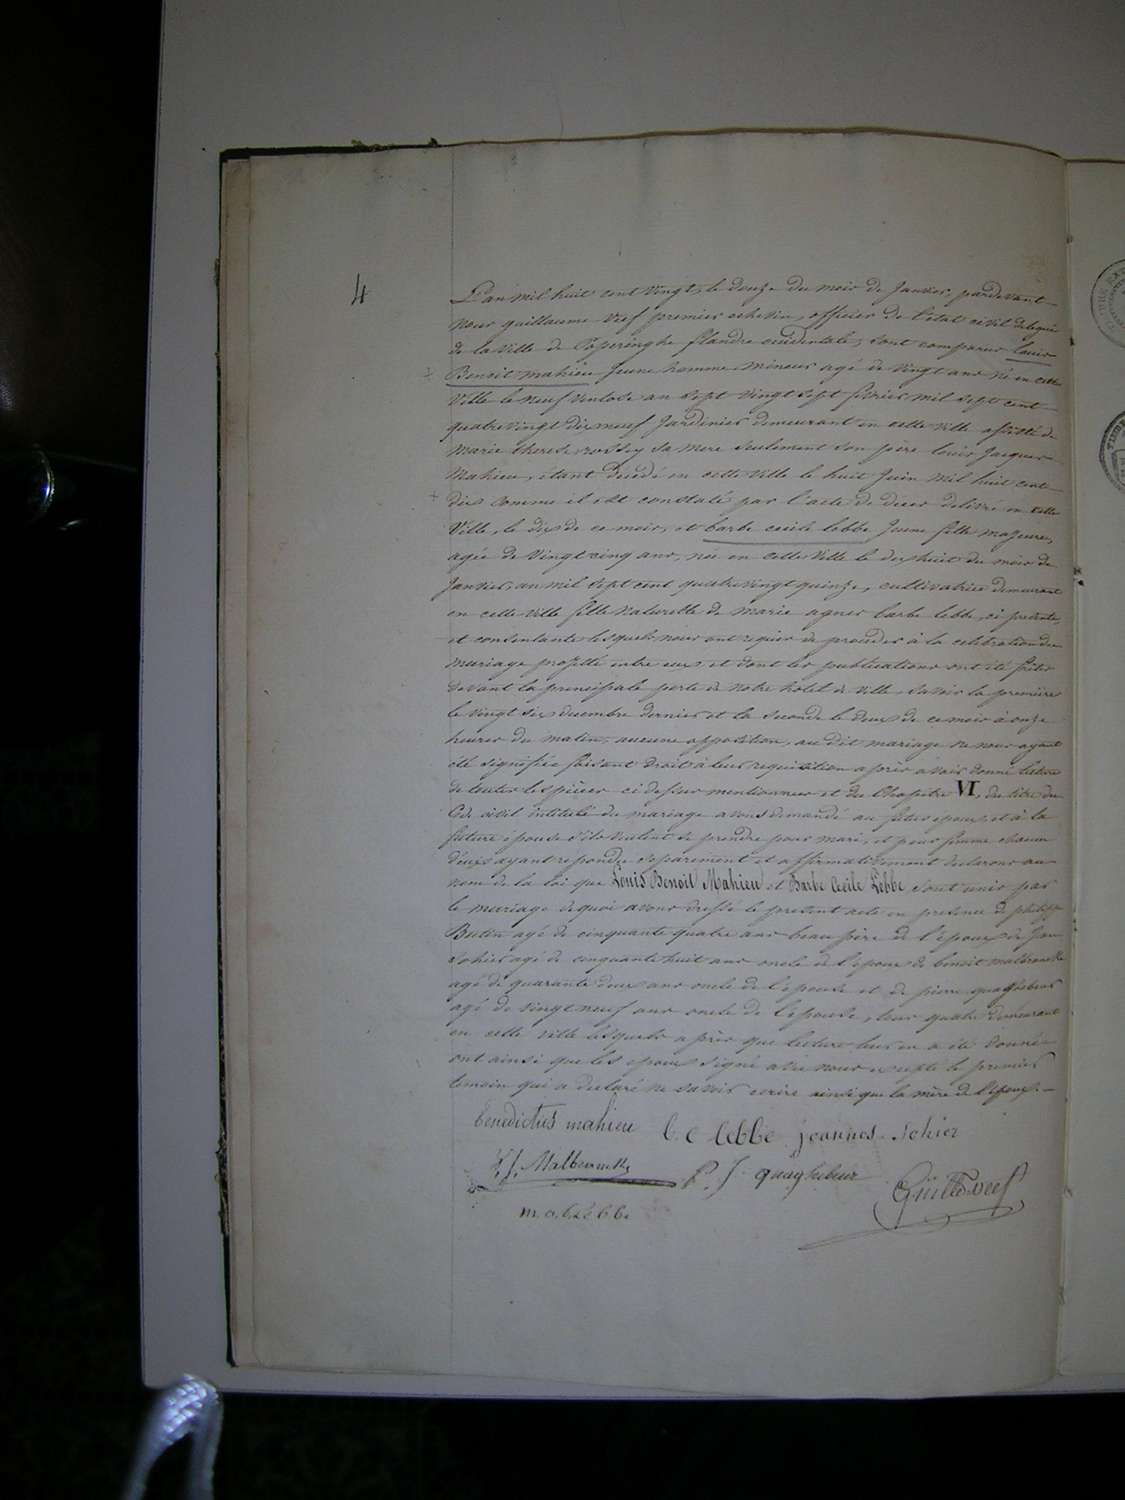 4
L'an mil huit cent vingt, le douze du mois de Janvier, pardevant
nous guillaume Vref premier echevin, officier de l'etat civil delegué
de la ville de Poperinghe flandre occidentale, sont comparus louis
Benoit mahieu jeune homme mineur agé de vingt ans né en cette
Ville le neuf ventose an sept vingt sept fevrier mil sept cent
quatrevingt dix neuf Jardinier demeurant en cette ville assisté de
marie therese rossey sa mere seulement son père louis Jacques
Mahieu, étant decedé en cette ville le huit Juin mil huit cent
dix comme il est constaté par l'acte de décès delivré en cette
Ville, le dix de ce mois, et barbe cecile lebbe jeune fille majeure,
agée de vingt cinq ans, née en cette ville le dix huit du mois de
Janvier, an mil sept cent quatrevingt quinze, cultivatrice demeurant
en cette ville fille naturelle de marie agnes barbe lebbe, ci presente,
et consentante lesquels nous ont requis de proceder à la celebration du
mariage projetté entre eux et dont les publications ont été faites
devant la principale porte de notre hotel de ville savoir la premiere
le vingt six decembre dernier et la seconde le deux de ce mois à onze
heures du matin, aucune opposition, au dit mariage ne nous ayant
été signifiée faisant droit à leur requisition après avoir donné lecture
de toutes les pièces ci dessus mentionnees et du Chapitre VI, du titre du
Code civil intitulé du mariage avons demandé au futur epoux et à la
future épouse s'ils veulent se prendre pour mari, et pour femme chacun
d'eux ayant repondu séparement et affirmativement declarons au
nom de la loi que Louis Benoit Mahieu et Barbe Cecile Lebbe sont unis par
le mariage de quoi avons dressé le present acte en presence de philippe
Butin agé de cinquante quatre ans beau père de l'époux de Jean
Sohier agé de cinquante huit ans oncle de l'epoux de benoit malbranck
agé de quarante deux ans oncle de l'epouse et de pierre quaghebeur
agé de vingt neuf ans oncle de l'épouse, tous quatre demeurant
en cette ville lesquels après que lecture leur en a été donnée
ont ainsi que les epoux signé avec nous excepté le premier
temoin qui a declaré ne savoir ecrire ainsi que la mère de l'epoux. —
benedictus mahieu b. c lebbe joannes Sohier
Malbranck P. J. quaghebeur
Guille Vref
m. a. b. Lebbe